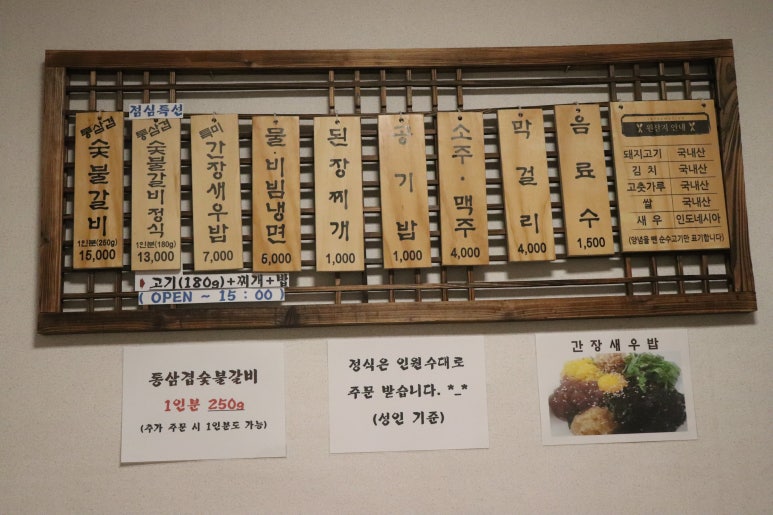 점심특선
통삼겹
숯불갈비
1인분(250g)
15,000
통삼겹
숯불갈비정식
1인분(180g)
13,000
특미
간장새우밥
7,000
물·비빔냉면
6,000
된장찌개
1,000
공기밥
1,000
소주·맥주
4,000
막걸리
4,000
음료수
1,500
원산지 안내
돼지고기 국내산
김치 국내산
고춧가루 국내산
쌀 국내산
새우 인도네시아
(양념을 뺀 순수고기만 표기합니다)
고기(180g)+찌개+밥
( OPEN ~ 15 : 00 )
통삼겹숯불갈비
1인분 250g
(추가 주문 시 1인분도 가능)
정식은 인원수대로
주문 받습니다. *_*
(성인 기준)
간장새우밥